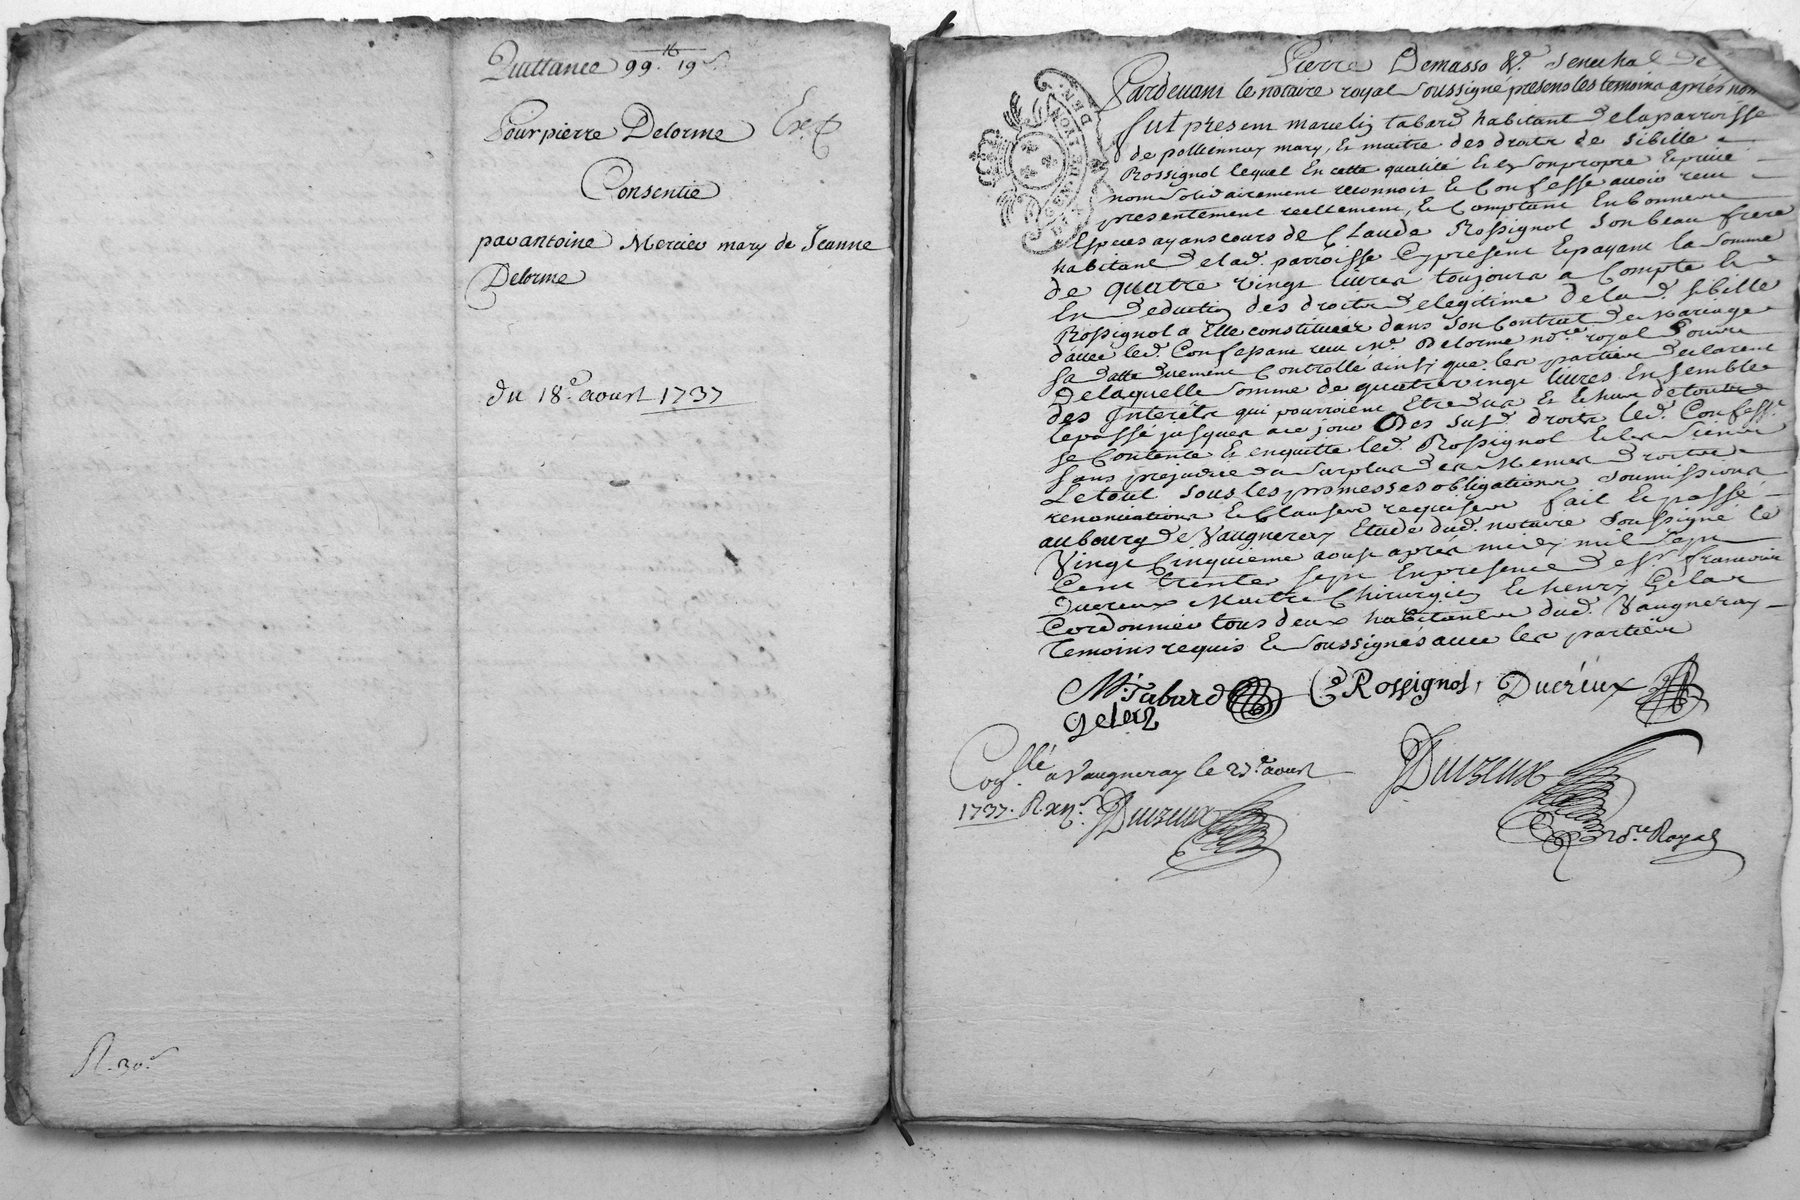 Quittance 99.lt 19s
Pour pierre Delorme Ex.
Consentie
par antoine Mercier mary de Jeanne
Delorme
du 18.e aoust 1737
R. 30.s
Pierre Demasso &r. Senechal de
Pardevant le notaire royal soussigné presens les temoins après nom
fut present marcelin tabard habitant de la parroisse
de polliennay mary, & maitre des droits de sibille
Rossignol lequel En cette qualité & en son propre & privé
nom solidairement reconnoit & Confesse avoir receu
presentement reellement, & Comptant En bonnes
Especes ayans cours de Claude Rossignol son beau frere
habitant de lad. parroisse Cy present & payant la somme
de quatre vingt livres toujours a Compte &
En deduction des droits de legitime de lad. sibille
Rossignol a Elle constituées dans son Contrat de Mariage
d'avec led. Confessant receu Me. Delorme nore. royal sous
sa datte duement Controllé ainsi que les parties declarent
De laquelle somme de quatre vingt livres Ensemble
des Interéts qui pourroient Etre dus & Echus de tout
le passé jusques a ce jour Des susd. droits led. Confesst.
se Contente & en quitte led. Rossignol & les siens
sans prejudice du surplus des Memes droits
Le tout sous les promesses obligations soumissions
renonciations & Clauses requises fait & passé
au bourg de Vaugneray Etude dud. notaire soussigné le
Vingt Cinquieme aoust après midy mil sept
Cent trente sept En presence de sr. francois
Ducreux Maitre Chirurgien & henry Gelas
Cordonnier tous deux habitants dud. Vaugneray
temoins requis & soussignés avec les parties
M. Tabard C Rossignol, Ducréux
Gelas
Conllé a Vaugneray le 27.e aoust
1737. R. xns. Ducreux
Ducreux
nore. Royal